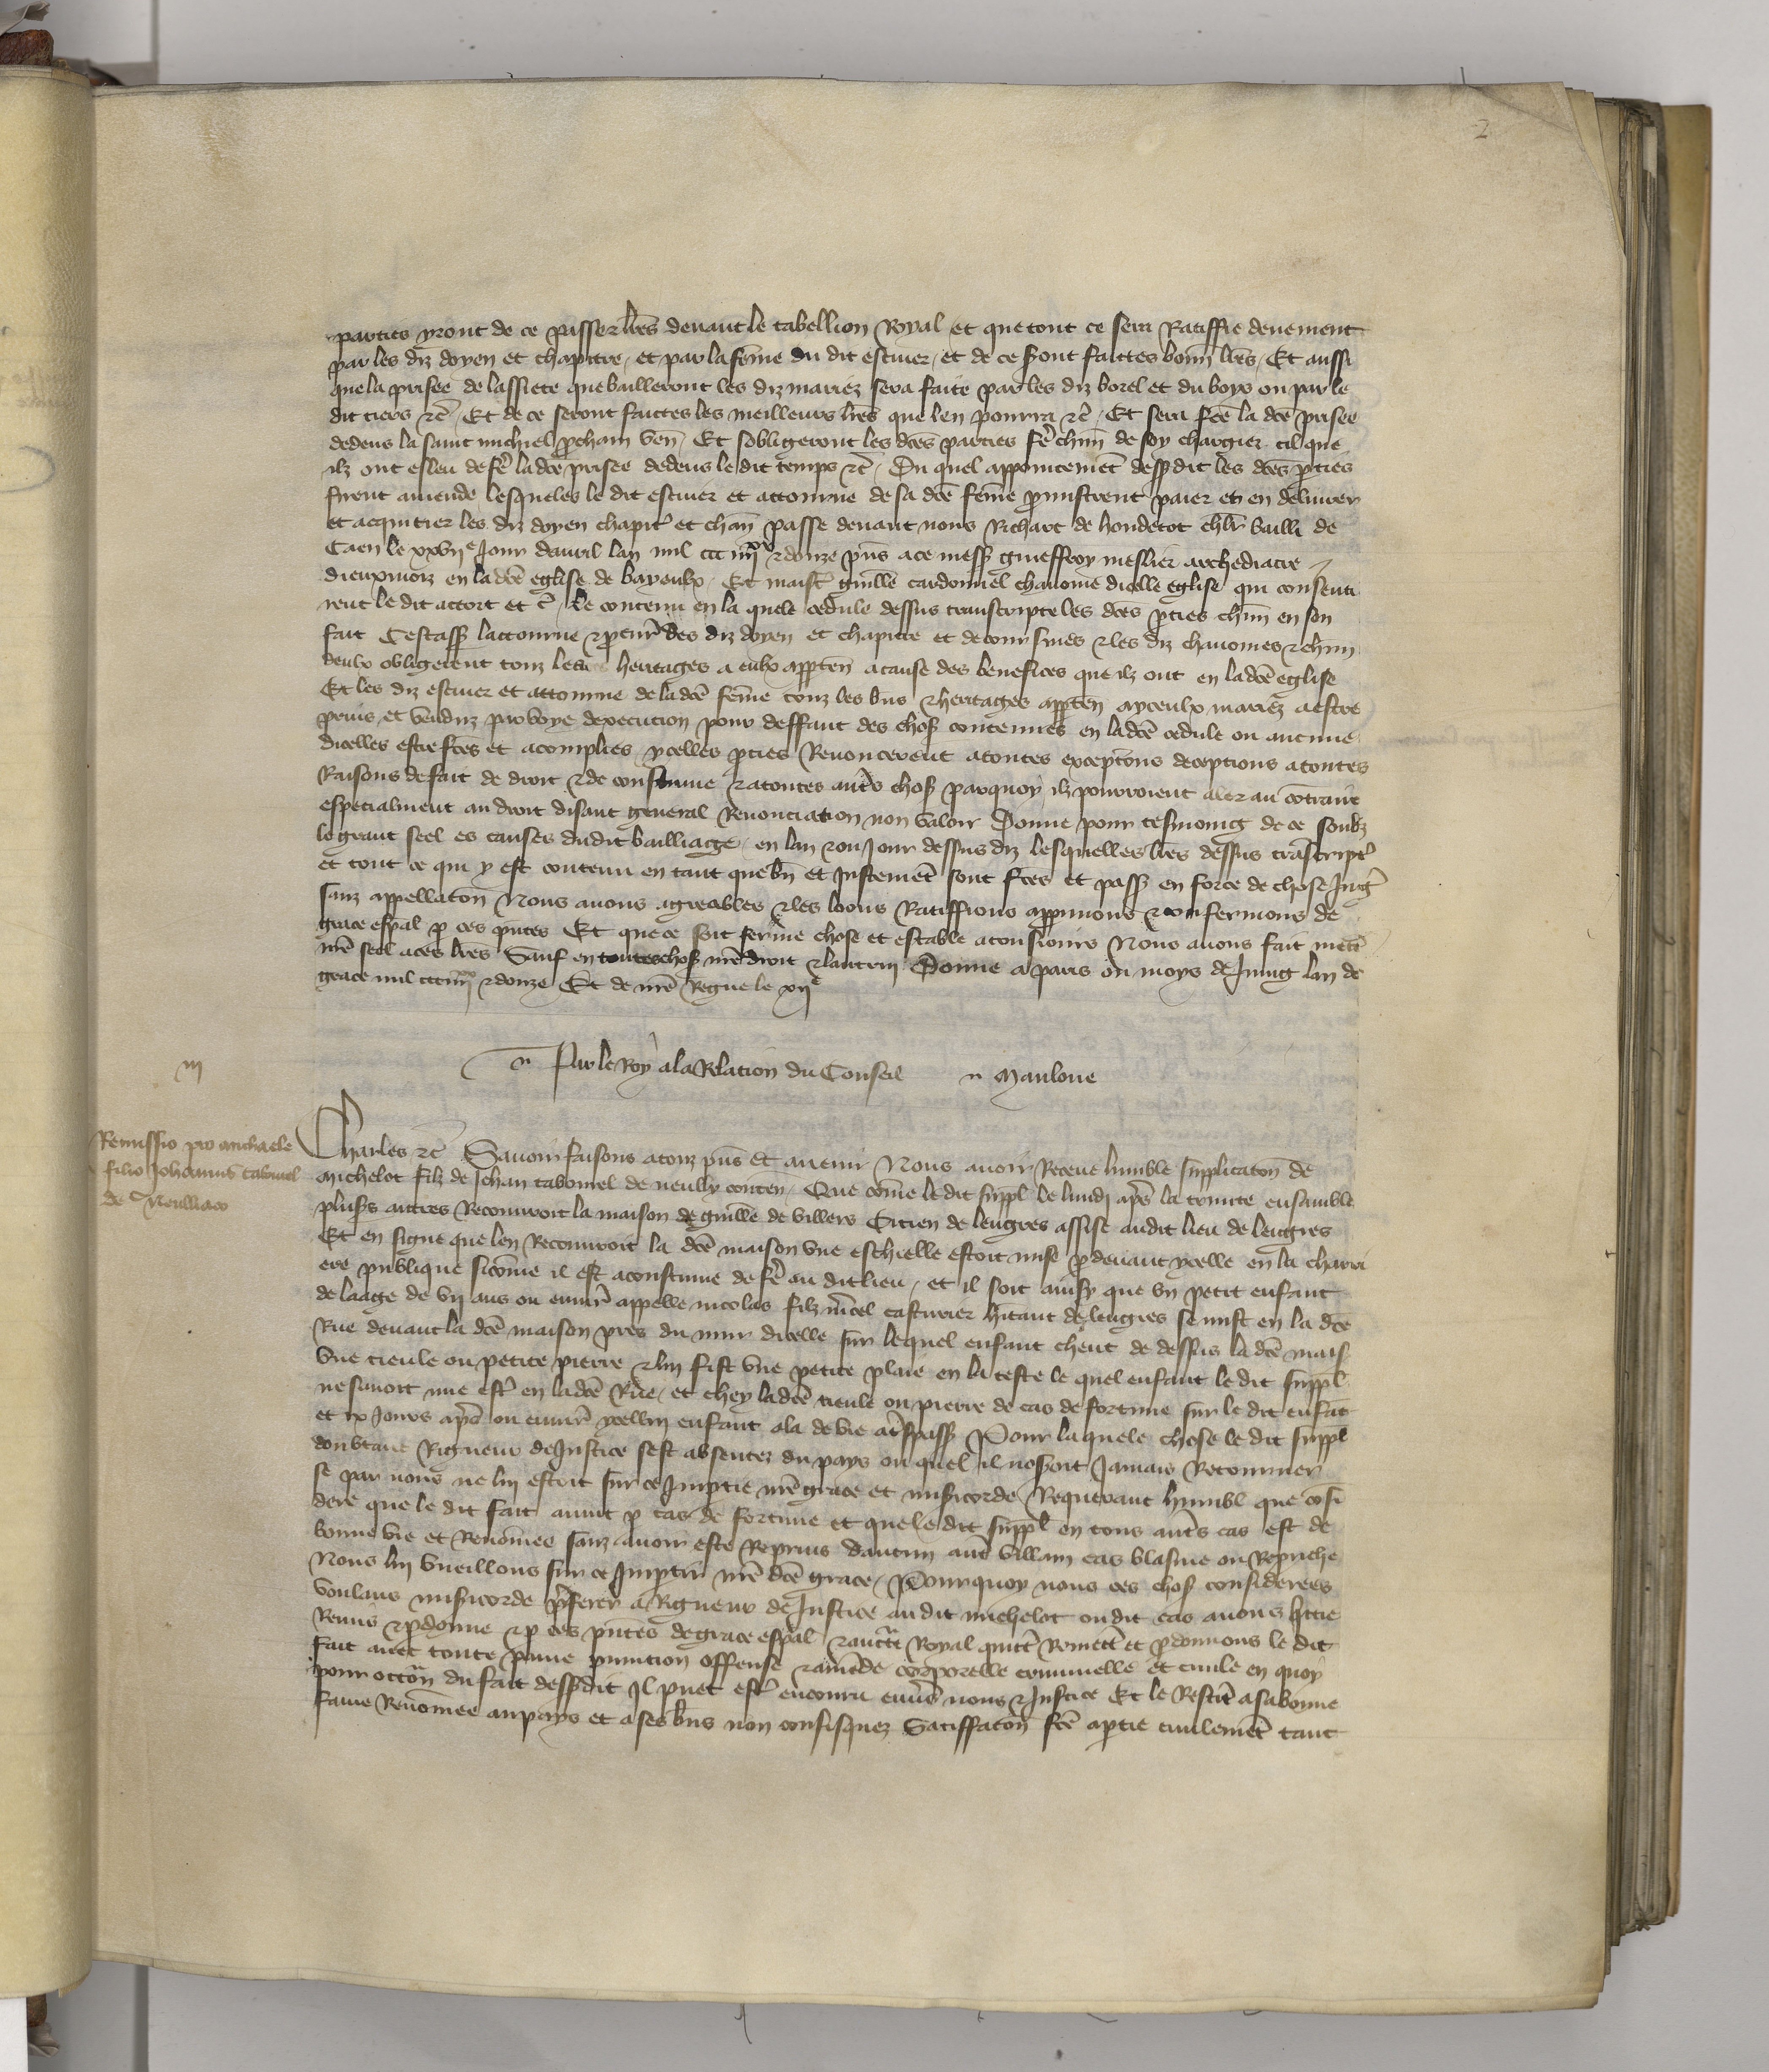 2
parties yront de ce passer lres devant le tabellion Royal et que tout ce sera Ratiffie deuement
par les diz doyen et chapitre, et par la feme du dit escuier, et de ce seront faittes bonn lres, Et aussi
que la prisee de lassiete que bailleront les diz mariez sera faite par les diz borel et du boys ou par le
dit tiers etc Et de ce seront faittes les meilleurs lres que len pourra etc, Et sera fce la dce prisee
dedens la saint michiel pcham ven Et sobligeront les dces parties fe chun de soy chargier cil que
ilz ont esleu de fe la dce prisee dedens le dit temps etc, Du quel appointemet dessdit les dces pties
furent amende lesqueles le dit escuier et attourne de sa dce feme promistrent paier et en delivrer
et acquitier les diz doyen chapit et chan passe devant nous Richart de hondetot chlr bailli de
Caen le xxvije Jour davril lan mil ccc iiijxx et donze pns a ce mess gieuffroy meslier archediacre
dieuxmoiz en la dce eglise de bayeulx, Et maist guille cardonnel chanoine dicelle eglise qui consenti
rent le dit accort et c, Le contenu en la quele cedule dessus transcripte les dces pties chun en son
fait Cestass lattourne et pcur des diz doyen et chapitre et de leur sines et les diz chanoines et chun
deulx obligerent touz leurs heritages a eulx apparten a cause des benefices que ilz ont en la dce eglise
Et les diz escuier et attourne de la dce feme touz les bns et heritages apparten a yceulx mariez a estre
prins et venduz par voye dexecution pour deffaut des chos contenues en la dce cedule ou aucune
dicelles estre fces et acomplies ycelles pties Renoncerent a toutes exceptons deceptions a toutes
Raisons de fait de droit et de coustume et a toutes autres chos parquoy ilz pourroient aler au contraire
especialment au droit disant general Renonciation non valoir Donne pour tesmoing de ce soubz
le grant seel es causes dudit bailliage, en lan et ou Jour dessus diz lesquelles lres dessus transcript
et tout ce qui y est contenu en tant que bn et Justemet sont fces et pass en force de chose Jug
sanz appellaton Nous avons agreables et les loons Ratiffions appruvons et confermons de
grace espal p ces pntes Et que ce soit ferme chose et estable a tousiours Nous avons fait mett
nre seel a ces lres Sauf en toutes chos nre droit et lautruy Donne a paris ou moys de Juing lan de
grace mil ccc iiijxx et donze Et de nre Regne le xije
Par le Roy a la Relacion du Conseil Manloue
iij
Remissio pro michaele
filio Johannis tabourel
de Neuilliaco
Charles etc Savoir faisons a touz pns et avenir Nous avoir Receue humble supplicaton de
michelot filz de Jehan tabourel de neuilly conten, Que come le dit suppl le lundi apres la trinite ensamble
pluss autres Recouvroit la maison de guille de villers Citien de lengres assise au dit lieu de lengres
Et en signe que len Recouvroit la dce maison vne eschielle estoit mise p devant ycelle en la charri
ere publique sicome il est acoustume de fe au dit lieu, et il soit ainsy que vn petit enfant
de laage de vij ans ou environ appelle nicolas filz marcel cousturier hitant de lengres se mist en la dce
Rue devant la dce maison pres du mur dicelle sur lequel enfant cheut de dessus la dce mais
vne tieule ou petite pierre et lui fist vne petite plaie en la teste le quel enfant le dit suppl
ne savoit mie est en la dce Rue, et chey la dce tieule ou pierre de cas de fortune sur le dit enfat
et ix Jours apres ou environ ycellui enfant ala de vie a trespass Pour laquele chose le dit suppl
doubtant Rigueur de Justice sest absentez du pays ou quel il noseroit Jamais Retourner
se par nous ne lui estoit sur ce Impartie nre grace et misericorde Requerant humbl que consi
dere que le dit fait avint p cas de fortune et que le dit suppl en tous autres cas est de
bonne vie et Renomee sanz avoir este Reprins dautrun autre villain cas blasme ou Reprouche
Nous lui vueillons sur ce Impartir nre dce grace, Pourquoy nous ces chos considerees
voulans misericorde preferer a Rigueur de Justice au dit michelot ou dit cas avons quittie
Remis et pdonne et p ces pntes de grace espal et auctte Royal quitt Remett et pdonnons le dit
fait avec toute paine punition offense et amende corporelle criminelle et civile en quoy
pour occon du fait dessdit Il puet est encouru envers nous et Justice Et le Restit a sa bonne
fame Renomee au pays et a ses bns non confisquez Satiffaton fce a ptie civilemet tant